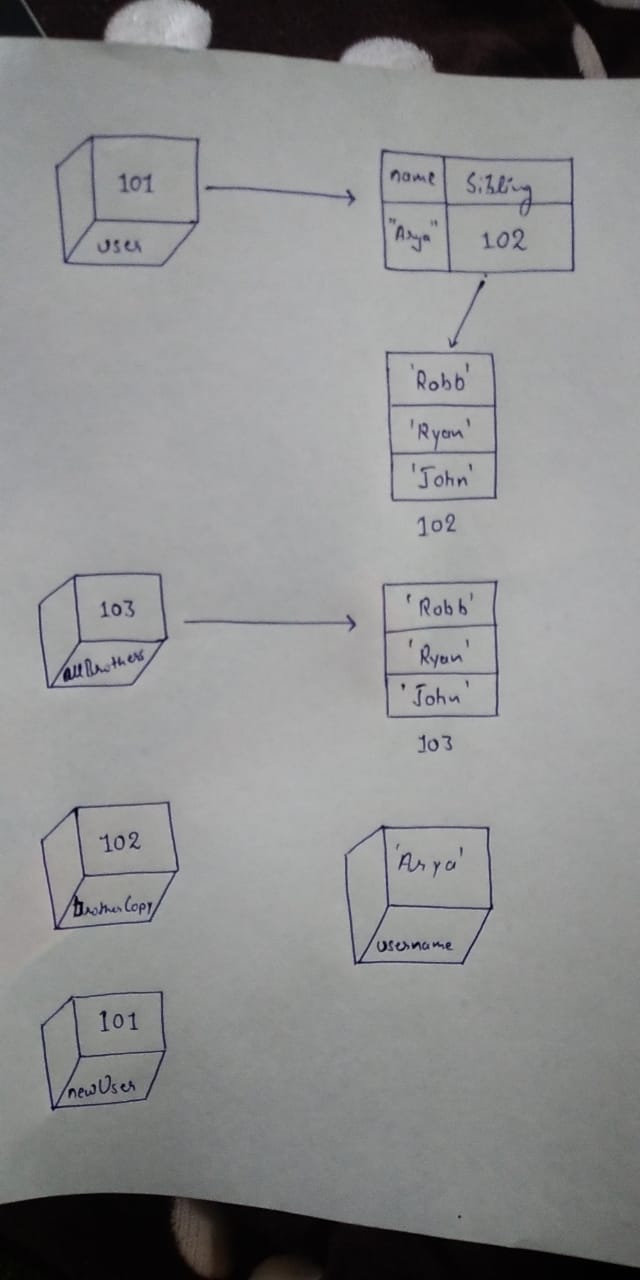 101
user
name Sibling
"Arya" 102
'Robb'
'Ryan'
'John'
102
103
allBrothers
'Robb'
'Ryan'
'John'
103
102
brotherCopy
'Arya'
username
101
newUser